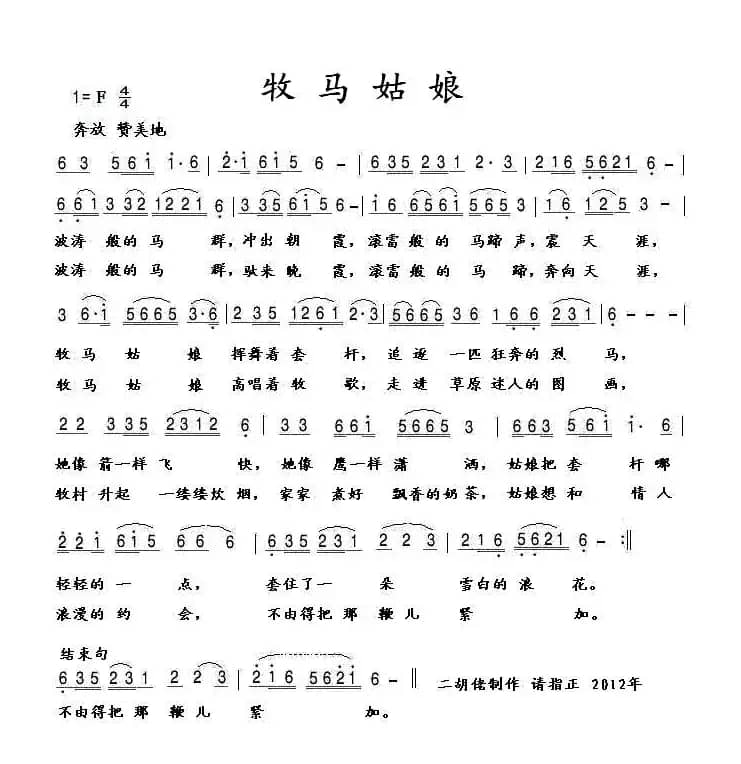 牧马姑娘
1= F 4/4
奔放 赞美地
6 3 5 6 i i·6 | 2·i 6 i 5 6 - | 6 3 5 2 3 1 2 3·6 | 2 1 6 5 6 2 1 6 - |
6 6 i 3 3 2 1 2 2 1 6 | 3 3 5 6 i 5 6 - | i 6 5 6 5 6 i 5 6 5 3 | i 6 1 2 5 3 - |
波涛 般的 马 群，冲出 朝 霞，滚雷 般的 马蹄 声，震 天 涯，
波涛 般的 马 群，驮来 晚 霞，滚雷 般的 马 蹄，奔向 天 涯，
3 6·i 5 6 6 5 3·6 | 2 3 5 1 2 6 1 2·3 | 5 6 6 5 3 6 1 6 6 2 3 1 | 6 - - - |
牧马 姑 娘 挥舞着 套 杆，追 逐 一匹 狂奔的 烈 马，
牧马 姑 娘 高唱着 牧 歌，走 进 草原 迷人的 图 画，
2 2 3 3 5 2 3 1 2 6 | 3 3 6 6 i 5 6 6 5 3 | 6 6 3 5 5 6 i i· 6 |
她像 箭一样 飞 快，她像 鹰一样 潇 洒，姑娘把 套 杆哪
牧村 升起 一缕缕炊 烟，家家 煮好 飘香的奶 茶，姑娘想 和 情人
2 2 i 6 i 5 6 6 6 | 6 3 5 2 3 1 2 2 3 | 2 1 6 5 6 2 1 6 - :‖
轻轻的 一 点， 套住了 一 朵 雪白的 浪 花。
浪漫的 约 会， 不由得把 那 鞭儿 紧 加。
结束句
6 3 5 2 3 1 2 2 3 | 2·i 6 5 6 2 i 6 - ‖ 二胡佬制作 请指正 2012年
不由得把 那 鞭儿 紧 加。